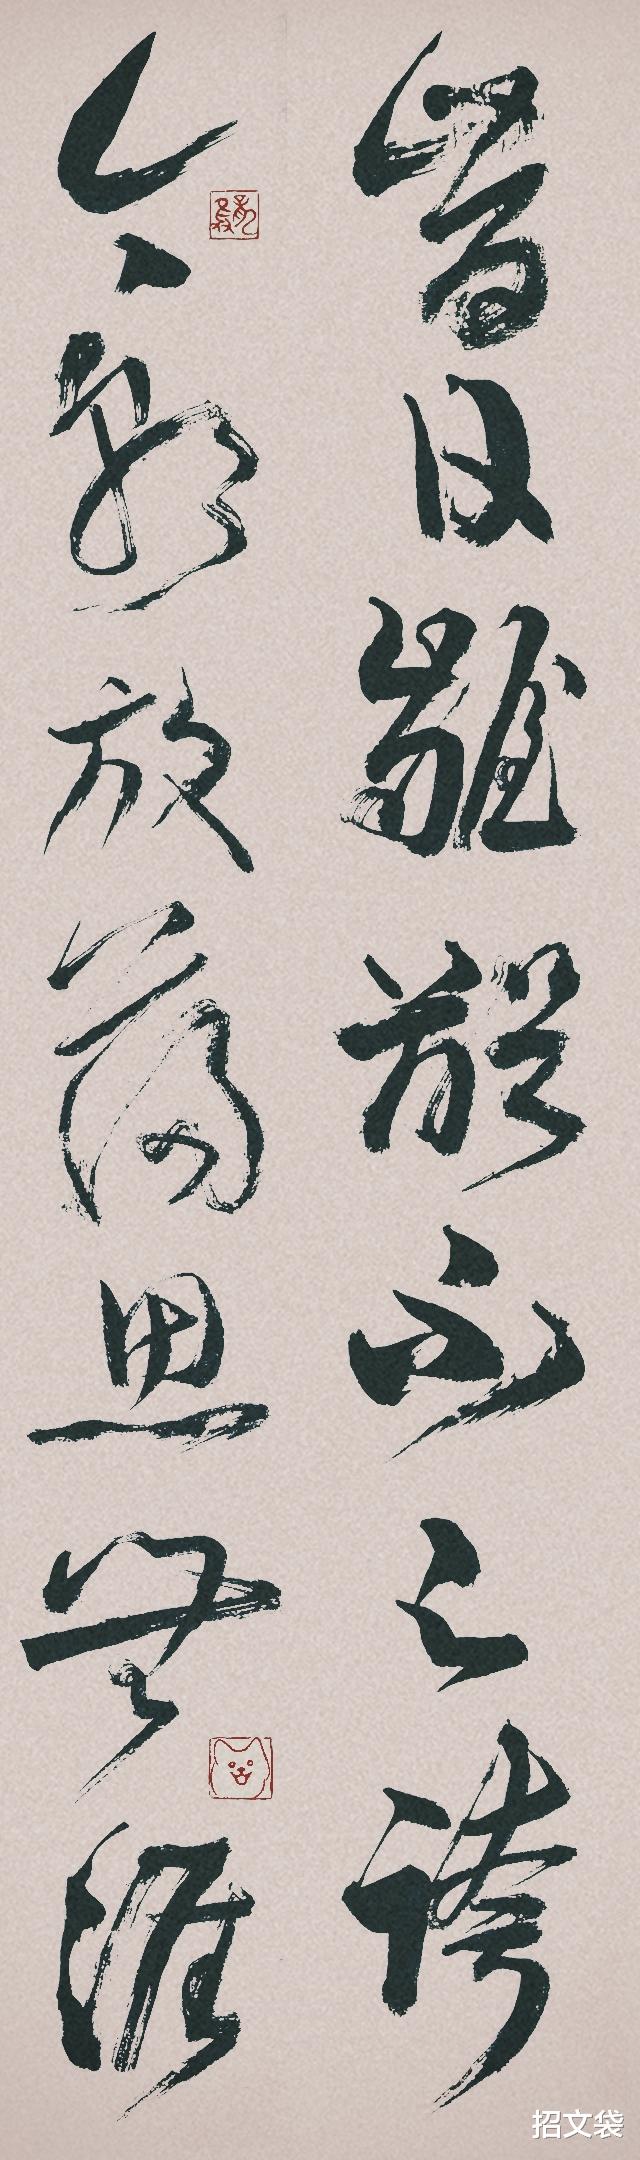 昔日龌龊不足誇
今朝放蕩思無涯
招文袋